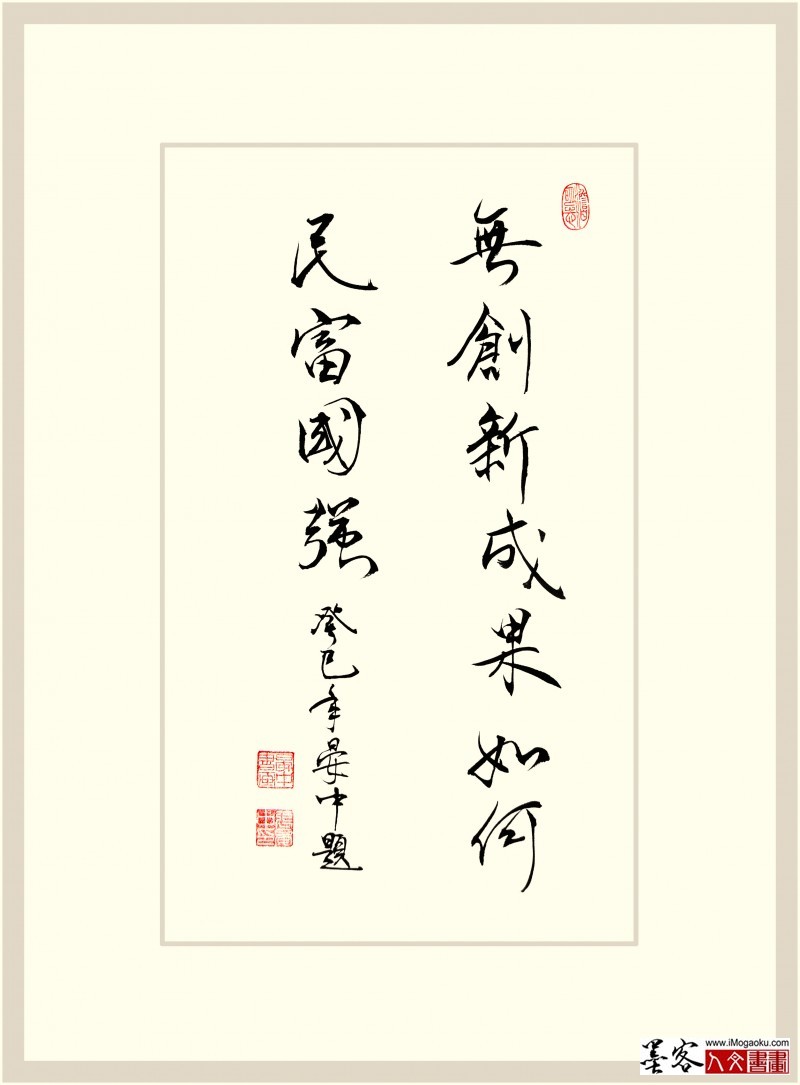 無創新成果如何
民富國強
癸巳年晏中題
墨客
www.iMogaoku.com
人文書畫